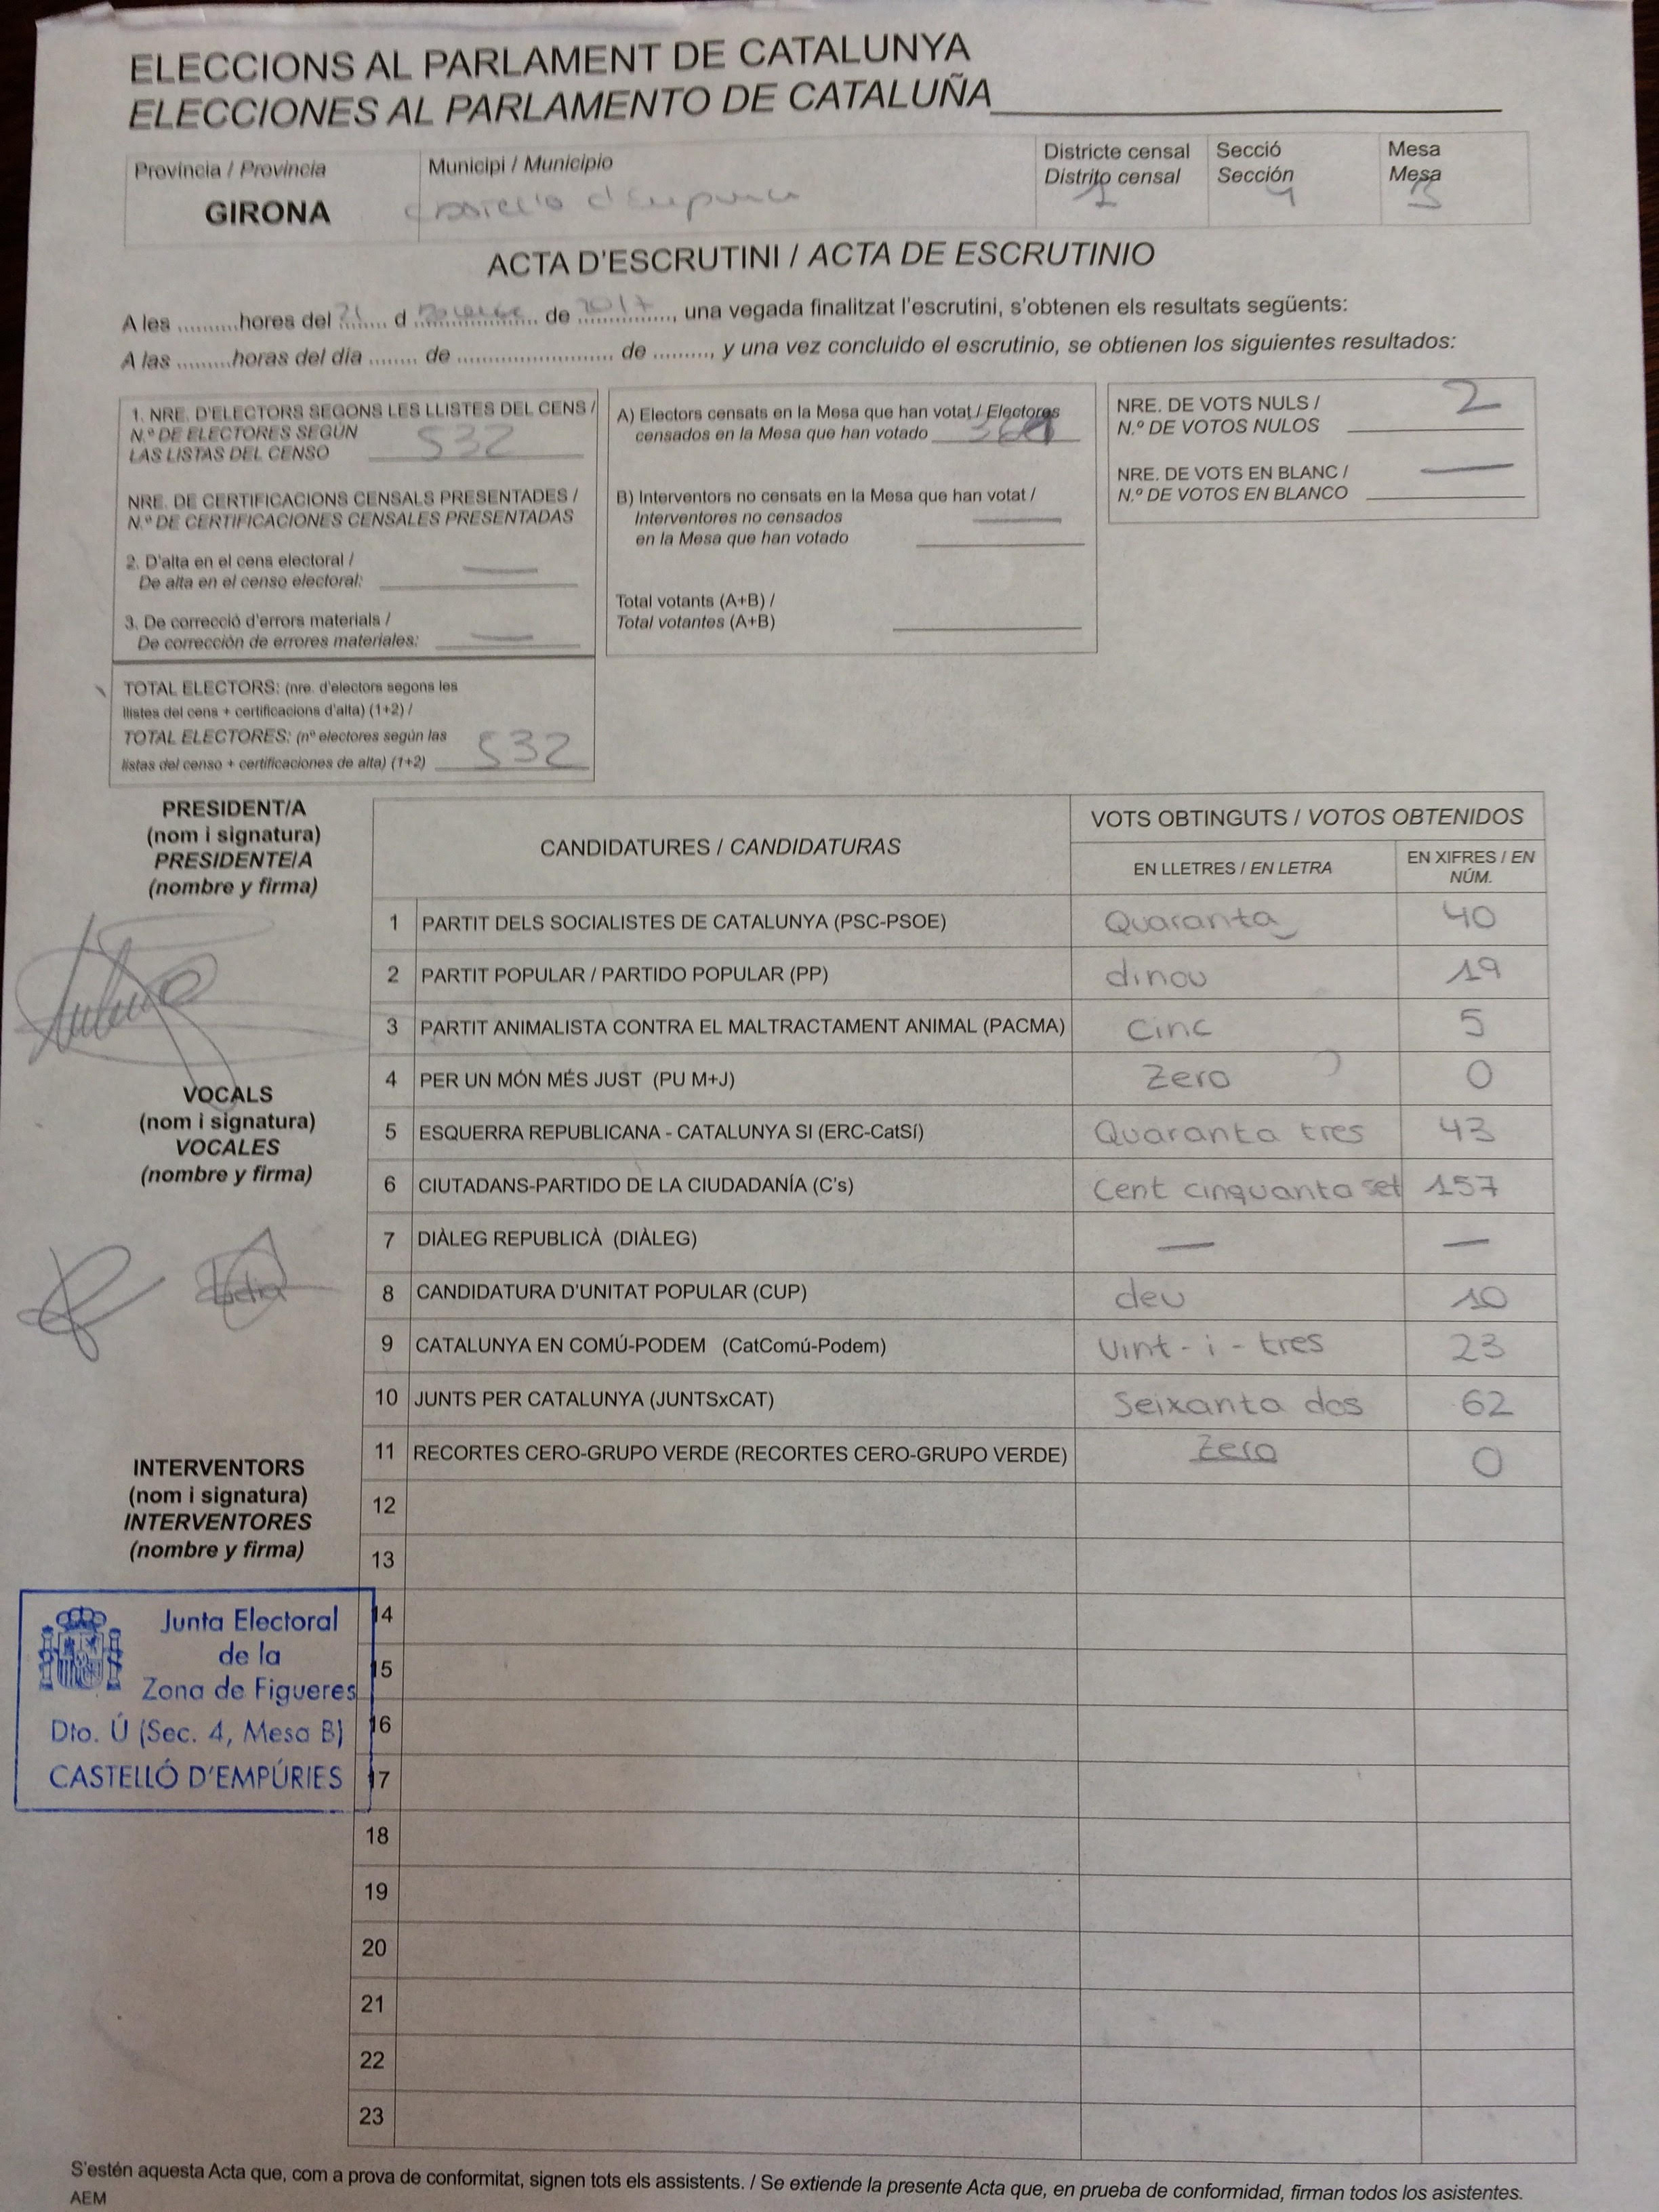 ELECCIONS AL PARLAMENT DE CATALUNYA
ELECCIONES AL PARLAMENTO DE CATALUÑA
Província / Provincia
GIRONA
Municipi / Municipio
Districte censal
Distrito censal
1
Secció
Sección
4
Mesa
Mesa
B
ACTA D'ESCRUTINI / ACTA DE ESCRUTINIO
A les .......... hores del 21 d ............ de 2017, una vegada finalitzat l'escrutini, s'obtenen els resultats següents:
A las ......... horas del día ........ de ........................ de ........., y una vez concluido el escrutinio, se obtienen los siguientes resultados:
1. NRE. D'ELECTORS SEGONS LES LLISTES DEL CENS /
N.º DE ELECTORES SEGÚN
LAS LISTAS DEL CENSO 532
NRE. DE CERTIFICACIONS CENSALS PRESENTADES /
N.º DE CERTIFICACIONES CENSALES PRESENTADAS
2. D'alta en el cens electoral /
De alta en el censo electoral: —
3. De correcció d'errors materials /
De corrección de errores materiales: —
TOTAL ELECTORS: (nre. d'electors segons les
llistes del cens + certificacions d'alta) (1+2) /
TOTAL ELECTORES: (nº electores según las
listas del censo + certificaciones de alta) (1+2) 532
A) Electors censats en la Mesa que han votat / Electores
censados en la Mesa que han votado
B) Interventors no censats en la Mesa que han votat /
Interventores no censados —
en la Mesa que han votado
Total votants (A+B) /
Total votantes (A+B)
NRE. DE VOTS NULS / 2
N.º DE VOTOS NULOS
NRE. DE VOTS EN BLANC / —
N.º DE VOTOS EN BLANCO
PRESIDENT/A
(nom i signatura)
PRESIDENTE/A
(nombre y firma)
VOCALS
(nom i signatura)
VOCALES
(nombre y firma)
INTERVENTORS
(nom i signatura)
INTERVENTORES
(nombre y firma)
Junta Electoral
de la
Zona de Figueres
Dto. Ú (Sec. 4, Mesa B)
CASTELLÓ D'EMPÚRIES
CANDIDATURES / CANDIDATURAS
VOTS OBTINGUTS / VOTOS OBTENIDOS
EN LLETRES / EN LETRA
EN XIFRES / EN
NÚM.
1 PARTIT DELS SOCIALISTES DE CATALUNYA (PSC-PSOE) Quaranta 40
2 PARTIT POPULAR / PARTIDO POPULAR (PP) dinou 19
3 PARTIT ANIMALISTA CONTRA EL MALTRACTAMENT ANIMAL (PACMA) Cinc 5
4 PER UN MÓN MÉS JUST (PU M+J) Zero 0
5 ESQUERRA REPUBLICANA - CATALUNYA SI (ERC-CatSí) Quaranta tres 43
6 CIUTADANS-PARTIDO DE LA CIUDADANÍA (C's) Cent cinquanta set 157
7 DIÀLEG REPUBLICÀ (DIÀLEG) — —
8 CANDIDATURA D'UNITAT POPULAR (CUP) deu 10
9 CATALUNYA EN COMÚ-PODEM (CatComú-Podem) Vint-i-tres 23
10 JUNTS PER CATALUNYA (JUNTSxCAT) Seixanta dos 62
11 RECORTES CERO-GRUPO VERDE (RECORTES CERO-GRUPO VERDE) Zero 0
12
13
14
15
16
17
18
19
20
21
22
23
S'estén aquesta Acta que, com a prova de conformitat, signen tots els assistents. / Se extiende la presente Acta que, en prueba de conformidad, firman todos los asistentes.
AEM